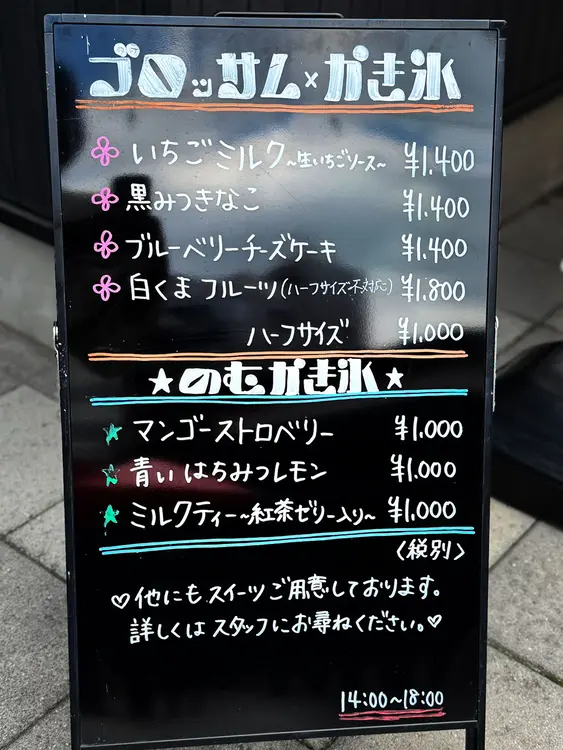 ブロッサム×かき氷
いちごミルク~生いちごソース~ ¥1.400
黒みつきなこ ¥1.400
ブルーベリーチーズケーキ ¥1.400
白くまフルーツ(ハーフサイズ不対応) ¥1.800
ハーフサイズ ¥1.000
★のむかき氷★
マンゴーストロベリー ¥1.000
青いはちみつレモン ¥1.000
ミルクティー~紅茶ゼリー入り~ ¥1.000
〈税別〉
♡他にもスイーツご用意しております。
詳しくはスタッフにお尋ねください。♡
14:00~18:00